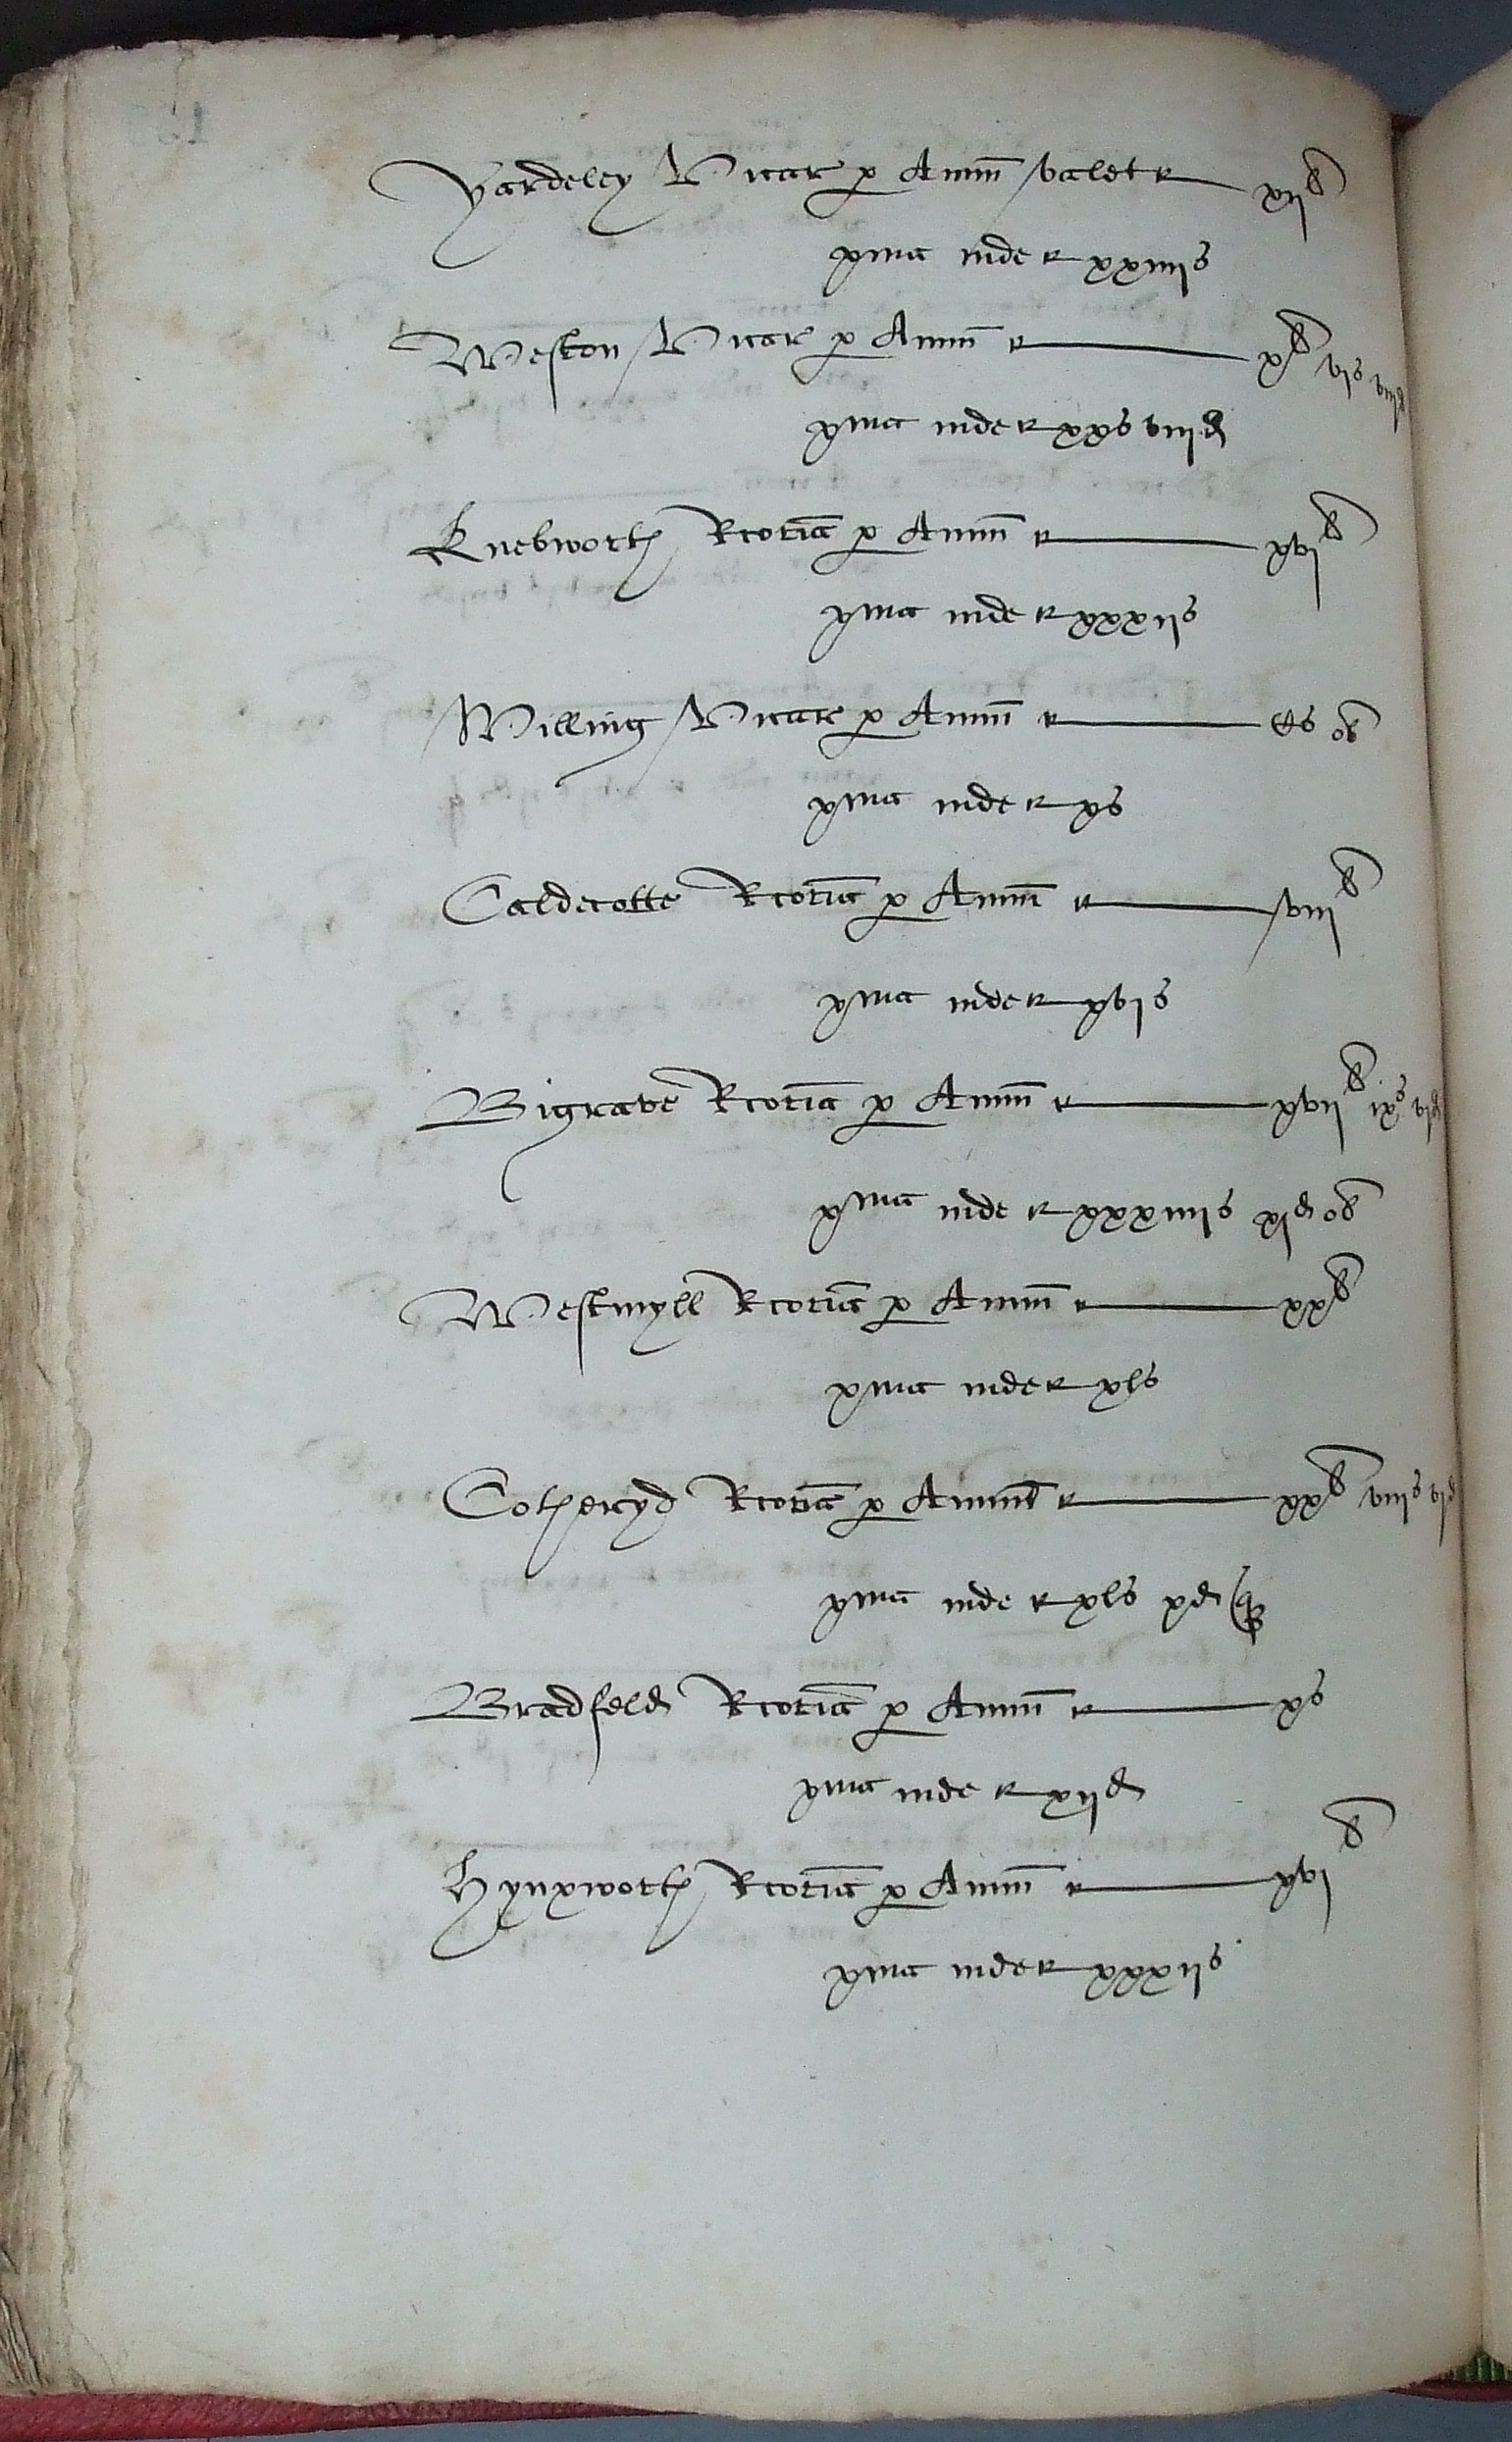 Yardeley Vicar p Annū valet xij li
xma inde xxiiijs
Weston Vicar p Annū x li vjs viijd
xma inde xxs viijd
Knebworth Rcoria p Annū xvj li
xma inde xxxijs
Willing Vicar p Annū Cs ob
xma inde xs
Caldecotte Rcoria p Annū viij li
xma inde xvjs
Bigrave Rcoria p Annū xvij li ixs vijd
xma inde xxxiiijs xjd ob
Westmyll Rcoria p Annū xx li
xma inde xls
Cotheryd Rcoria p Annū xx li viijs vijd
xma inde xls xd q
Bradfeld Rcoria p Annū xs
xma inde xijd
Hynxworth Rcoria p Annū xvj li
xma inde xxxijs